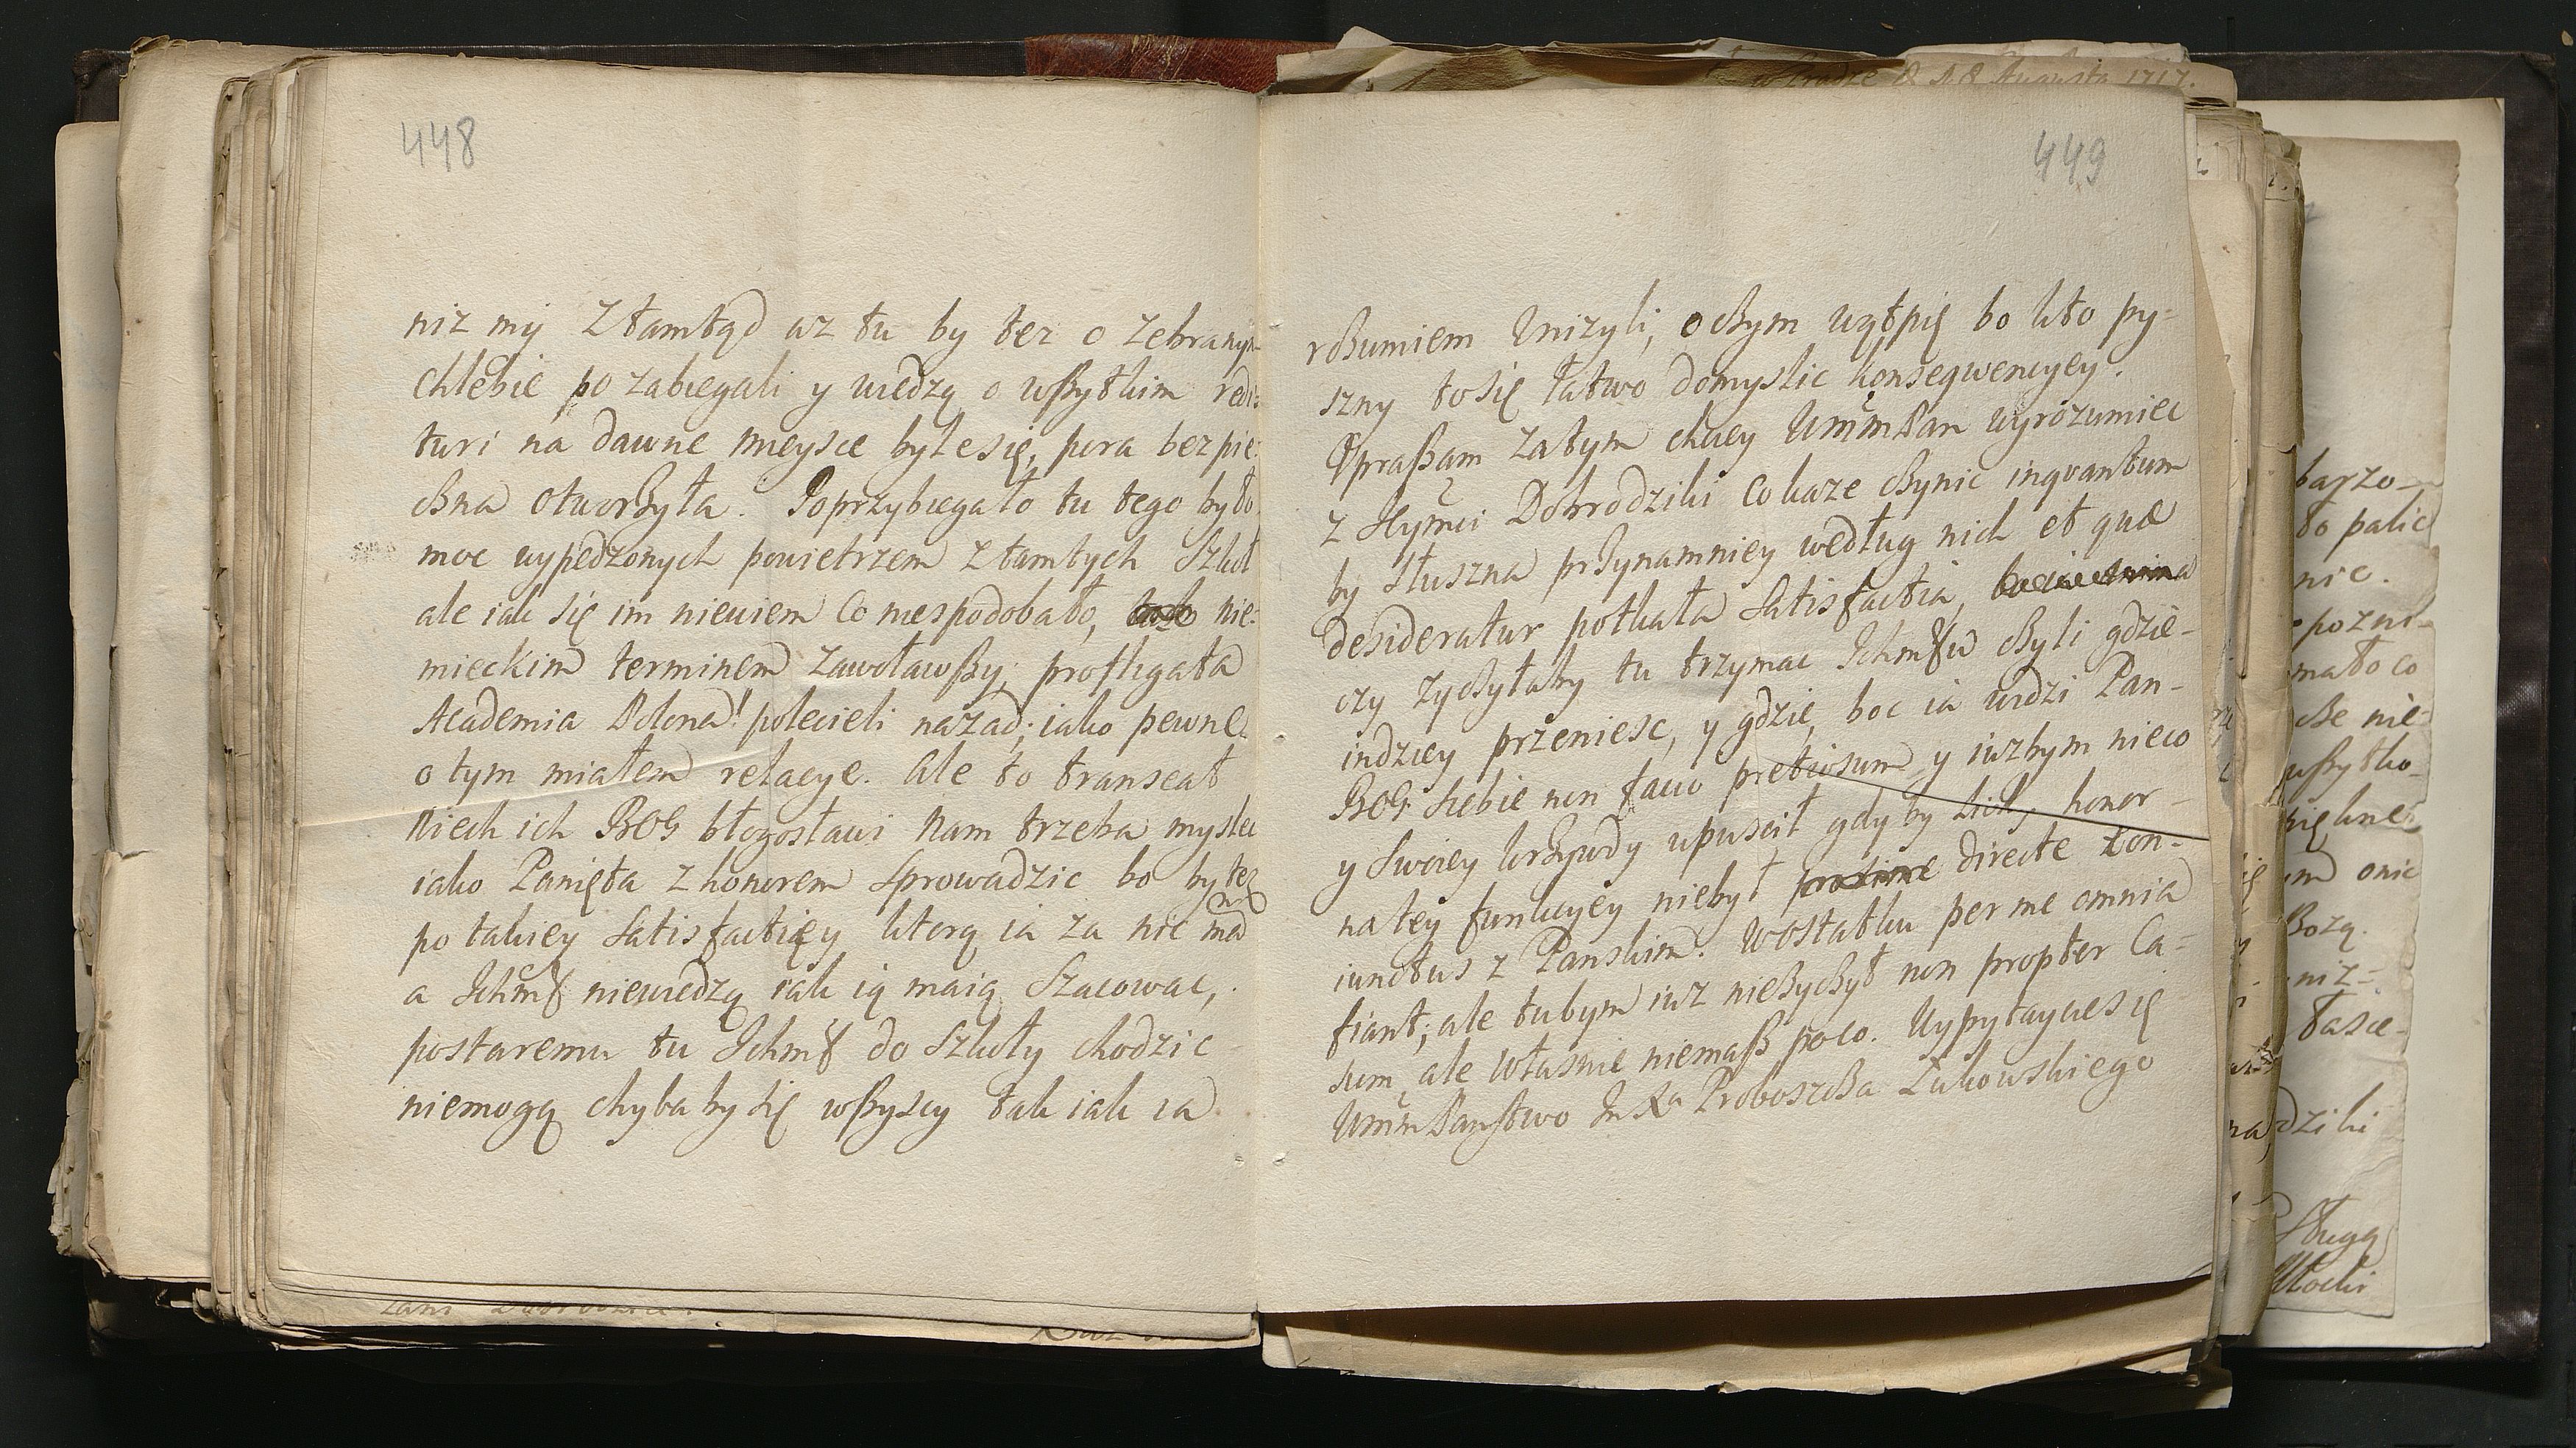 448
niz my ztamtąd az tu by tez o zebranym
chlebie po zabiegali y wiedzą o wszytkim redi:
turi na dawne mieysce byle się pora bezpie:
czna otworzyła. Poprzybiegało tu tego było
moc wypędzonych powietrzem z tamtych Szkoł
ale iak się im niewiem co niespodobało, nie:
mieckim terminem zawoławszy, profligata
Academia Polona! polecieli nazad; iako pewne
o tym miałem relacye. Ale to transeat
Niech ich BOG błogosławi Nam trzeba myslec
iako Panięta z honorem sprowadzic bo by tez
po takiey satisfactiey ktorą ia za nic mam
a Ichmć niewiedzą iak ią maią szacowac,
postaremu tu Ichmć do Szkoły chodzic
niemogą chyba by się wszyscy tak iak ia
449
rozumiem znizyli, o czym wątpię bo kto py-
szny to się łatwo domyslic konseqwencyey.
Upraszam zatym chciey WmmPan wyrozumiec
z Jeymci Dobrodziki co kaze czynic inqvantum
by słuszna przynamniey według nich et quæ
desideratur potkała satisfactia,
czy zyczyłaby tu trzymac Ichmćw czyli gdzie-
indziey przeniesc, y gdzie, boc ia widzi Pan-
BOG siebie non facio pretiosum y iuzbym nieco
y swoiey krzywdy upuscił gdyby honor
na tey funkcyey niebył directe con-
iunctus z Panskim. Wostatku per me omnia
fiant, ale tubym iuz nieżyczył non propter Ca-
sum ale własnie niemasz poco. Wypytaycie się
WmmPanstwo Im Xa Proboszcza Łukowskiego